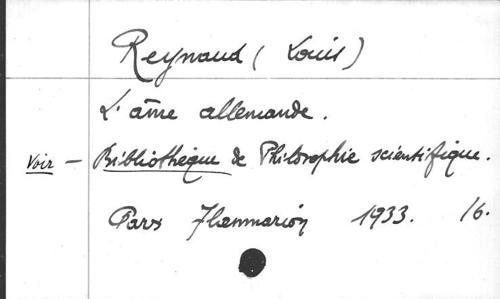 Reynaud (Louis)
L'âme allemande.
Voir - Bibliothèque de Philosophie scientifique.
Paris Flammarion 1933. 16.